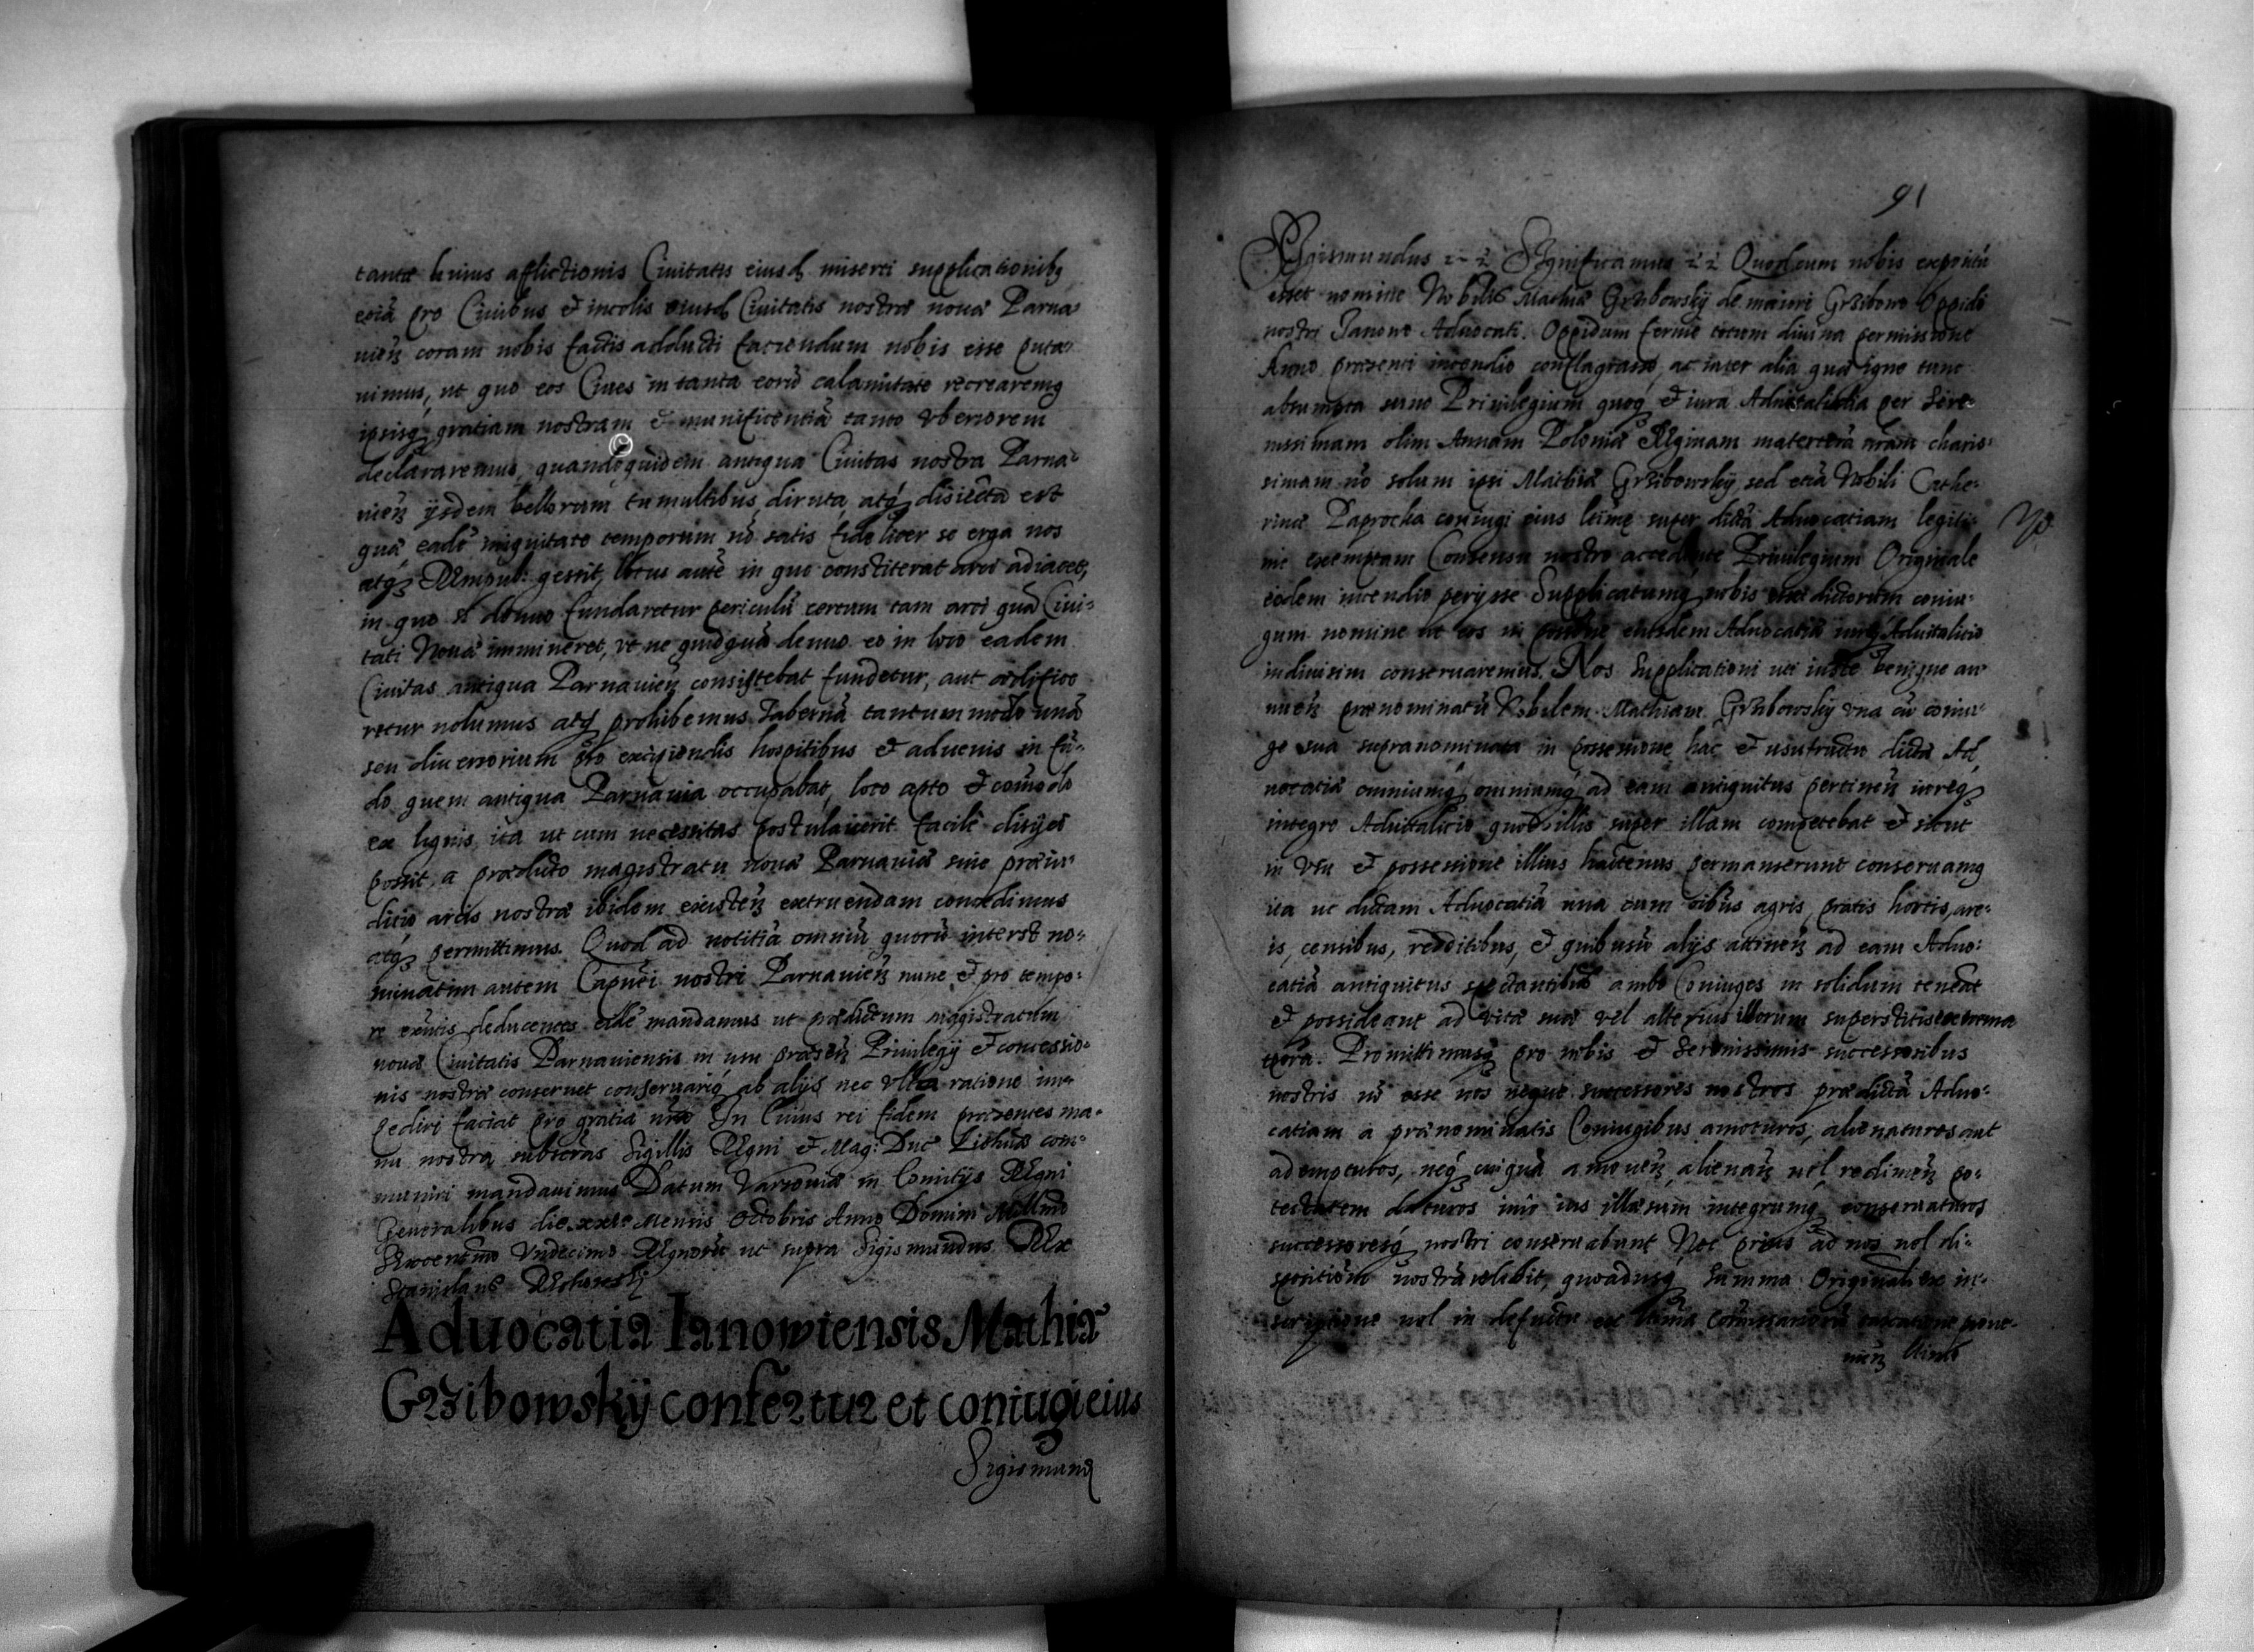 tantæ huius afflictionis Ciuitatis eiusd miserti supplicationibq
etiā pro Ciuibus et incolis eiusd Ciuitatis nostræ nouæ Parna
uieñ coram nobis factis adducti faciendum nobis esse puta
uimus, ut quo eos Ciues in tanta eorū calamitate recrearemq
ipsisq gratiam nostram et munificentiā tanto vberiorem
declararemus, quandoquidem antiqua Ciuitas nostra Parna-
uieñ ÿsdem bellorum tumultibus diruta atq disiecta est
quæ eadē iniquitate temporum nō satis fideliter se erga nos
atq Rempub: gessit, locus autē in quo constiterat arci adiacet,
in quo si denuo fundaretur periculū certum tam arci quā Ciui-
tati Nouæ immineret, ut ne quidquā denuo eo in loco eadem
Ciuitas antiqua Parnauieñ consistebat fundetur, aut ædifica
retur nolumus atq prohibemus Tabernā tantummodo unā
seu diuersorium pro excipiendis hospitibus et aduenis in fū-
do quem antiqua Parnauia occupabat, loco apto et cōmodo
ex lignis ita ut cum necessitas postulauerit facile disijci
possit, a prædicto magistratu nouæ Parnauiæ sine præiu-
ditio arcis nostræ ibidem existeñ extruendam concedimus
atq permittimus. Quod ad notitiā omniū quorū interest no-
minatim autem Capnēi nostri Parnauieñ nunc et pro tempo-
re exntis deducentes eidē mandamus ut prædictum magistratum
nouæ Ciuitatis Parnauiensis in usu præseñ Priuilegij et concessio-
nis nostræ conseruet conseruariq ab alijs nec vlla ratione im-
pediri faciat pro gratia nrā In Cuius rei fidem præsentes ma-
nu nostra subscras Sigillis Regni et Mag: Duc Lithuæ com-
muniri mandauimus Datum Varsouiæ in Comitijs Regni
Generalibus die xxi Mensis Octobris Anno Domini Millmo
Sexcentmo Vndecimo Regnorū ut supra Sigismundus Rex
Stanislaus
Aduocatia Ianowiensis Mathiæ
Grzibowskÿ confertur et coniugi eius
Sigismund
91
Sigismundus Significamus Quod cum nobis expositū
esset nomine Nobilis Mathiæ Grzibowskÿ de maiori Grzibowo Oppidi
nostri Ianowo Aduocati. Oppidum ferme totum diuina permissione
Anno præsenti incendio conflagrasse, ac inter alia quæ igne tunc
absumpta sunt Priuilegium quoq et iura Aduitalitia per Sere-
nissimam olim Annam Poloniæ Reginam materterā nram charis-
simam nō solum ipsi Mathiæ Grzibowskÿ sed etiā Nobili Cathe-
rinæ Paprocka coniugi eius super dictā Aduocatiam legiti-
me exemptam Consensu nostro accedente Priuilegium Originale
eodem incendio perÿsse Supplicatumq nobis dictorum coniu-
gum nomine ut eos in eiusdem Aduocatiæ Aduitalitio
indiuisim conseruaremus. Nos Supplicationi uti iustæ benigne an-
nueñ prænominatū Nobilem Mathiam Grzibowskÿ vna cū coniu-
ge sua supranominata in possessione hac et usufructu dictæ Ad
uocatiæ omniumq ad eam antiquitus pertineñ
integro Aduitalitio quod illis super illam competebat et sicut
in vsu et possessione illius hactenus permanserunt conseruamq
ita ut dictam Aduocatiā una cum oibus agris, pratis hortis, are-
is, censibus, redditibus, et quibusuis alijs attineñ ad eam Aduo-
catiā antiquitus spectantibus ambo Coniuges in solidum teneāt
et possideant ad vitæ suæ vel alterius illorum superstitis extrema
tpora. Promittimusq pro nobis et Serenissimis successoribus
nostris nō esse nos neque successores nostros prædictā Aduo-
catiam a prænominatis Coniugibus amoturos, alienaturos aut
adempturos, neq cuiquā amoueñ, alienañ uel redimeñ po-
testatem daturos imo ius illæsum integrumq conseruaturos
successoresq nostri conseruabunt Nec prius ad nos uel di-
spositiōm nostrā relabit, quoadusq Summa Originali ex in-
scriptione uel in defectu ex proue-
nieñ